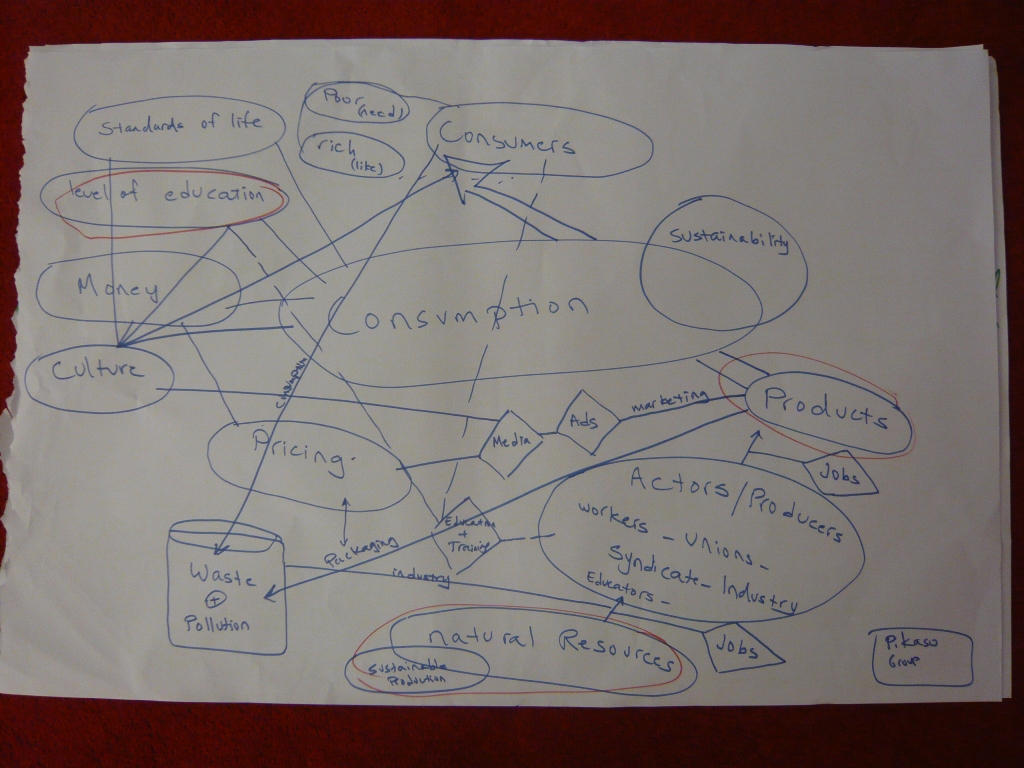 Poor
(need)
Standards of life
Consumers
rich
(like)
level of education
Sustainability
Money
Consumption
Culture
marketing
Products
Ads
Media
Pricing.
Jobs
Actors/Producers
workers - Unions -
Syndicate - Industry
Educators -
Education
+
Training
Packaging
industry
Waste
+
Pollution
natural Resources
Sustainable
Production
Jobs
Pikaso
Group